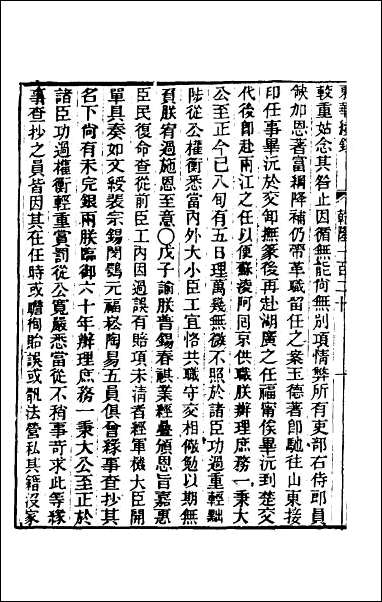 東華續錄　乾隆一百二十
較重姑念其咎止因循無能尚無別項情弊所有吏部右侍郎員
缺加恩著富綱降補仍帶革職留任之案玉德著卽馳往山東接
印任事畢沅於交卸撫篆後再赴湖廣之任福甯俟畢沅到楚交
代後卽赴兩江之任以便蘇淩阿囘京供職朕辦理庶務一秉大
公至正今已八旬有五日理萬幾無微不照於諸臣功過重輕黜
陟從公權衡悉當內外大小臣工宜恪共職守交相儆勉以期無
負朕宥過施恩至意○戊子諭朕普錫春祺業經疊頒恩旨嘉惠
臣民復命查從前臣工內因過誤有賠項未淸者經軍機大臣開
單具奏如文綬裴宗錫閔鶚元福崧陶易五員俱曾緣事查抄其
名下尙有未完銀兩朕臨御六十年辦理庶務一秉大公至正於
諸臣功過權衡輕重賞罰從公寬嚴悉當從不稍事苛求此等緣
事查抄之員皆因其在任時或瞻徇貽誤或骫法營私其籍沒家